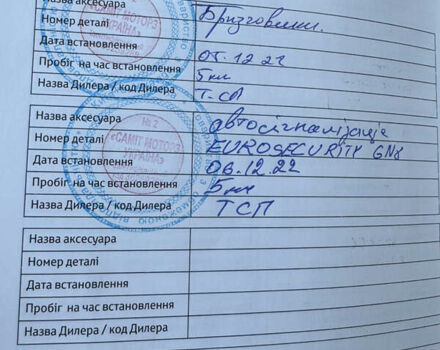 Назва аксесуара Бризговики.
Номер деталі
Дата встановлення 05.12.22
Пробіг на час встановлення 5 км
Назва Дилера / код Дилера ТСП
№ 2
«САМІТ МОТОРЗ УКРАЇНА»
Назва аксесуара автосігналізація
Номер деталі EUROSECURITY GN8
Дата встановлення 06.12.22
Пробіг на час встановлення 5 км
Назва Дилера / код Дилера ТСП
Назва аксесуара
Номер деталі
Дата встановлення
Пробіг на час встановлення
Назва Дилера / код Дилера